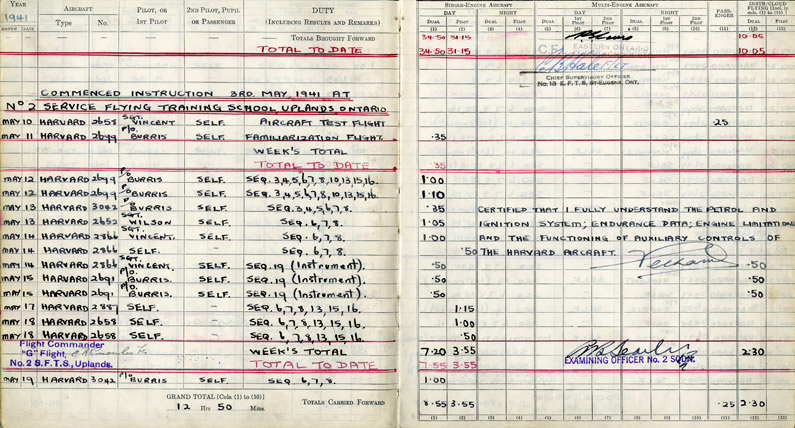 YEAR AIRCRAFT PILOT, OR 1ST PILOT 2ND PILOT, PUPIL OR PASSENGER DUTY (INCLUDING RESULTS AND REMARKS)
1941
MONTH DATE Type No.
TOTALS BROUGHT FORWARD
TOTAL TO DATE
COMMENCED INSTRUCTION 3RD. MAY, 1941 AT
NO 2 SERVICE FLYING TRAINING SCHOOL, UPLANDS ONTARIO.
MAY 10 HARVARD 2658 SGT. VINCENT SELF. AIRCRAFT TEST FLIGHT
MAY 11 HARVARD 2699 P/O. BURRIS SELF. FAMILIARIZATION FLIGHT.
WEEK'S TOTAL
TOTAL TO DATE
MAY 12 HARVARD 2699 P/O BURRIS SELF. SEQ. 3,4,5,6,7,8,10,13,15,16.
MAY 12 HARVARD 2699 P/O BURRIS. SELF. SEQ. 3,4,5,6,7,8,10,13,15,16.
MAY 13 HARVARD 3042 P/O BURRIS SELF. SEQ. 3,4,5,6,7,8.
MAY 13 HARVARD 2652 SGT. WILSON SELF. SEQ. 6,7,8.
MAY 14 HARVARD 2866 SGT. VINCENT. SELF. SEQ. 6,7,8.
MAY 14 HARVARD 2866 SELF. — SEQ. 6,7,8.
MAY 14 HARVARD 2866 SGT. VINCENT, SELF. SEQ. 19 (Instrument).
MAY 15 HARVARD 2691 P/O. BURRIS. SELF. SEQ. 19 (Instrument).
MAY 15 HARVARD 2691 P/O. BURRIS. SELF. SEQ. 19 (Instrument).
MAY 17 HARVARD 2887 SELF. — SEQ. 6,7,8,13,15,16.
MAY 18 HARVARD 2658 SELF. — SEQ. 6,7,8,13,15,16.
MAY 18 HARVARD 2658 SELF. — SEQ. 6,7,8,13,15,16.
Flight Commander
"G" Flight,
WEEK'S TOTAL
No. 2 S.F.T.S., Uplands.
TOTAL TO DATE
MAY 19 HARVARD 3042 P/O BURRIS SELF. SEQ. 6,7,8.
GRAND TOTAL [Cols. (1) to (10)]
12 Hrs 50 Mins.
TOTALS CARRIED FORWARD
SINGLE-ENGINE AIRCRAFT MULTI-ENGINE AIRCRAFT PASSENGER INSTR/CLOUD FLYING [Incl. in cols. (1) to (10)]
DAY NIGHT DAY NIGHT
DUAL PILOT DUAL PILOT DUAL 1ST PILOT 2ND PILOT DUAL 1ST PILOT 2ND PILOT DUAL PILOT
(1) (2) (3) (4) (5) (6) (7) (8) (9) (10) (11) (12) (13)
34.50 31.15 10.05
34.50 31.15 10.05
EASTERN ONTARIO
CHIEF SUPERVISORY OFFICER
No. 13 E.F.T.S., ST-EUGENE, ONT.
.25
.35
.35
1.00
1.10
.35 CERTIFIED THAT I FULLY UNDERSTAND THE PETROL AND
1.05 IGNITION SYSTEM; ENDURANCE DATA; ENGINE LIMITATIONS
1.00 AND THE FUNCTIONING OF AUXILIARY CONTROLS OF
.50 THE HARVARD AIRCRAFT.
.50 .50
.50 .50
.50 .50
1.15
1.00
.50
7.20 3.55 2:30
EXAMINING OFFICER No. 2 SQDN.
7.55 3.55
1.00
8.55 3.55 .25 2.30
(1) (2) (3) (4) (5) (6) (7) (8) (9) (10) (11) (12) (13)